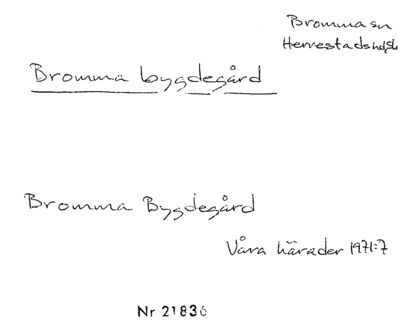 Bromma sn
Herrestads hd, Sk
Bromma bygdegård
Bromma Bygdegård
Våra härader 1971:7
Nr 21836